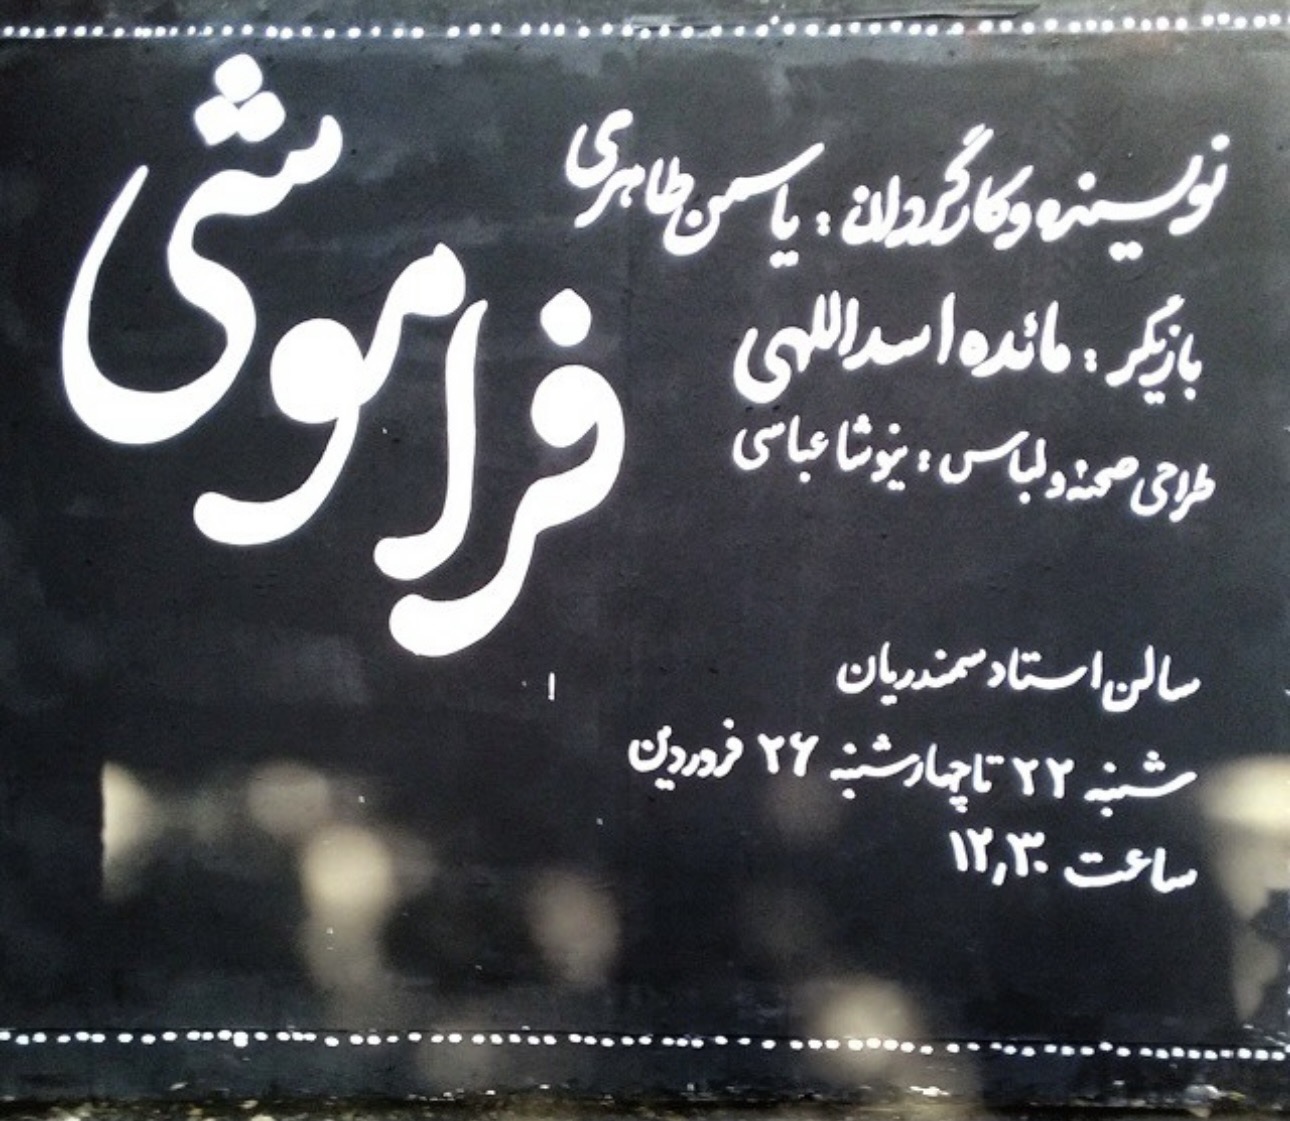 فراموشی
نویسنده و کارگردان : یاسمن طاهری
بازیگر : مائده اسداللهی
طراحی صحنه و لباس : نیوشا عباسی
سالن استاد سمندریان
شنبه ۲۲ تا چهارشنبه ۲۶ فروردین
ساعت ۱۲,۳۰